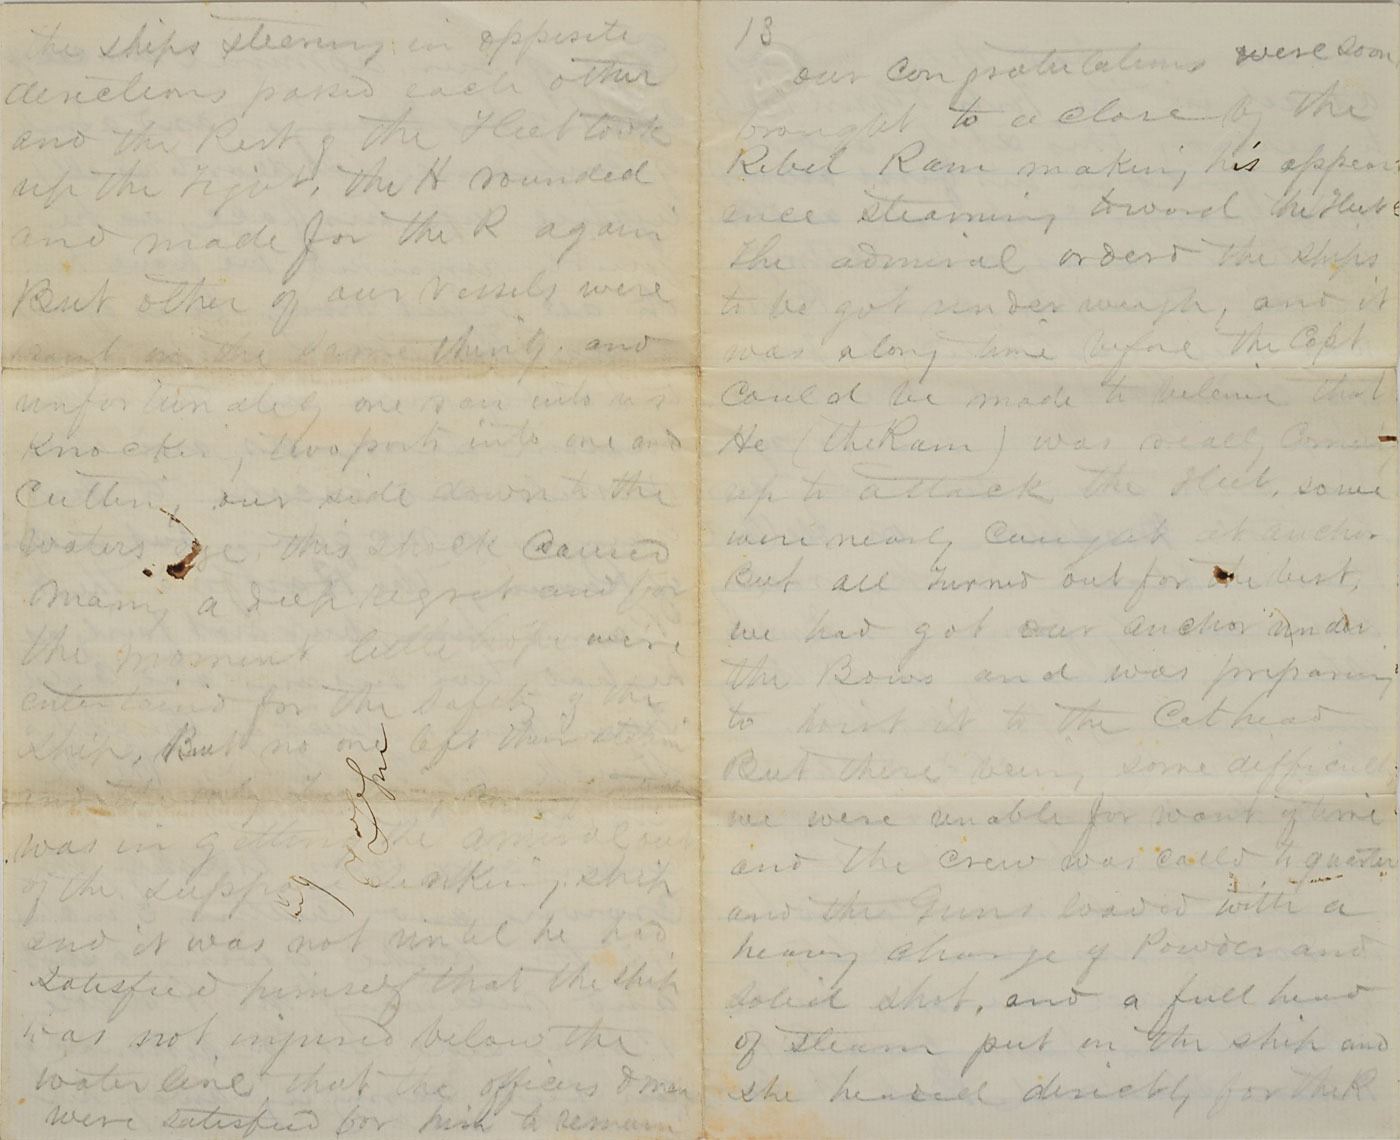 the ships steaming in opposite
directions passed each other
and the Rest of the Fleet took
up the Fight, the H rounded
and made for the R again
But other of our vessels were
on the same thing. and
unfortunately one ran into us
Knocking two ports into one and
Cutting our side down to the
waters ege, this shock Caused
Many a deep regret and for
the moment little hope were
entertained for the Safety of the
ship, But no one left their station
and the only
was in getting the amiral out
of the suppose sinking ship
and it was not until he had
Satisfied himself that the ship
was not injured below the
waterline that the officers & men
were satisfied for him to remain
13
our Congratulations were soon
brought to a close by the
Rebel Ram making his appear
ence steaming toward the Fleet
the admiral orderd the ships
to be got under weigh, and it
was along time before the Capt
Could be made to beleive that
He (the Ram) was really Coming
up to attack the Fleet, some
were nearly Caught at anchor
But all turned out for the best,
we had got our anchor under
the Bows and was preparing
to hoist it to the Cathead
But there being some difficulty
we were unable for want of time
and the crew was called to quarters
and the Guns loaded with a
heavy charge of Powder and
Solid shot, and a full head
of steam put in the ship and
she headed directly for the R